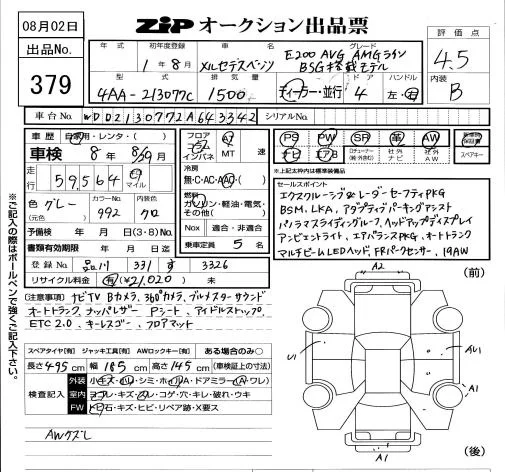 08月02日
ZIP オークション出品票
評価点
4.5
出品No.
379
年式 初年度登録 車名 グレード
1年8月 メルセデスベンツ E200 AVG AMGライン
BSG搭載モデル
内装
B
型式 排気量 ドア ハンドル
4AA-213077C 1500 ディーラー・並行 4 左・右
車台No. WDD2130772A643342 シリアルNo.
車歴 自家用・レンタ( )
車検 8年8月9日
走行 59,564 マイル
色 グレー
(元色)
カラーNo.
992
内装色
クロ
予備検 年月日(3・8)No.
書類有効期限 年月日
登録No. 品川 331 す 3326
リサイクル料金 有(¥21,020) 未
フロア
インパネ
AT
MT
速
冷房
無・C・AC・AAC・( )
燃料
ガソリン・軽油・電気・
その他( )
Nox 適合・非適合
乗車定員 5 名
PS PW SR 革 AW
ナビ エアB
社外
ナビ
社外
AW
スペアキー
※上記太枠は標準装備品
セールスポイント
エクスクルーシブ&レーダーセーフティPKG
BSM、LKA、アダプティブパーキングアシスト
パノラマスライディングルーフ、ヘッドアップディスプレイ
アンビエントライト、エアバランスPKG、オートトランク
マルチビームLEDヘッド、FRパークセンサー、19AW
注意事項 ナビTV Bカメラ、360°カメラ、ブルメスターサウンド
オートトランク、ナッパレザー Pシート、アイドルストップ、
ETC2.0、キーレスゴー、フロアマット
スペアタイヤ[有] ジャッキ工具[有] AWロックキー[有] ある場合のみ○
長さ495cm 幅185cm 高さ145cm (車検証上の寸法)
検査記入
外装 小キズ・凹・シミ・ホイルA・ドアミラー(A・ワレ)
室内 ヨゴレ・キズ・スレ・コゲ・穴・キレ・破れ・ウキ
FW トビ石・キズ・ヒビ・リペア跡・X要ス
AWケズレ
※ご記入の際はボールペンで強くご記入下さい。
(前)
A2
U1
AU1
A1
A1
(後)